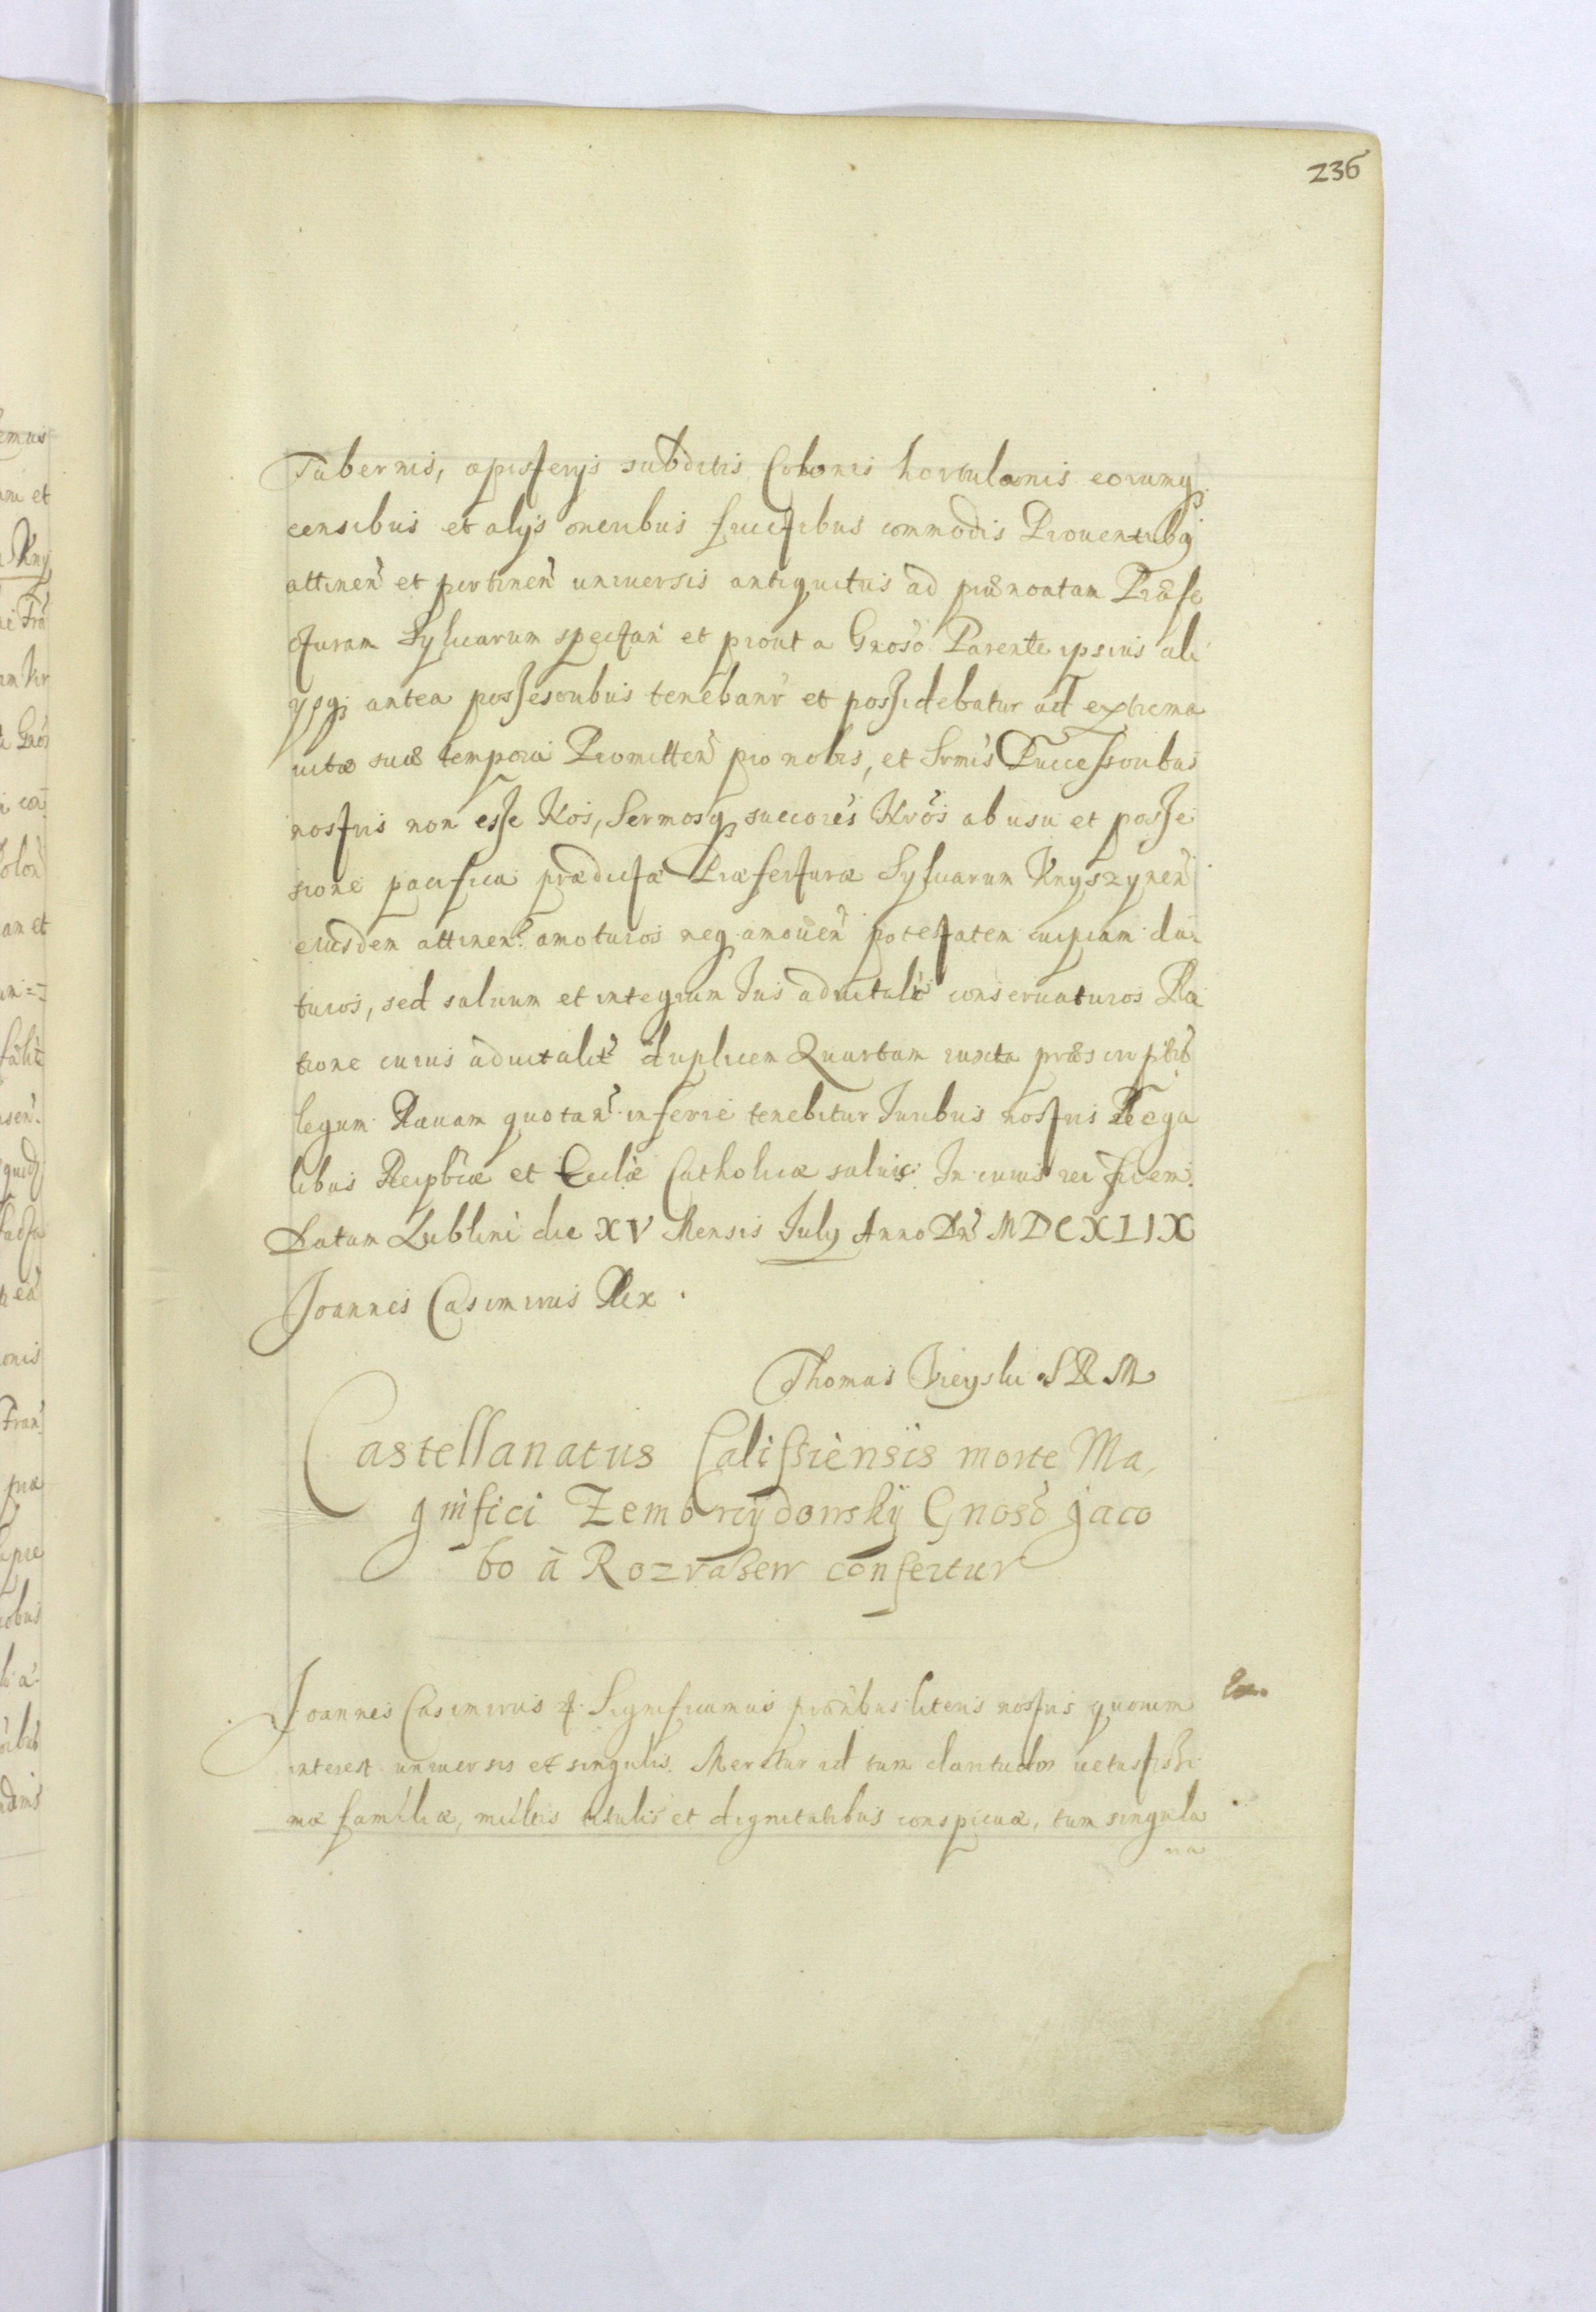 236
Tabernis, apisterijs subditis Colonis hortulanis eorumq3
censibus et alijs oneribus fructibus commodis Prouentibq3
attinen et pertinen uniuersis antiquitus ad prænoatam Præfe
cturam Syluarum spectan et prout a Gnoso Parente ipsius ali
ysq3 antea possesoribus tenebanr et possidebatur ad extrema
uitæ suæ tempora Promitten pro nobis, et Srmis Successoribus
nostris non esse Nos, Sermosq3 succores Nros ab usu et posse
sione pacifica prædicta Præfecturæ Syluarum Knyszynen
eiusdem attinen. amoturos neq3 amouen potestatem cuipiam da
turos, sed saluum et integrum Ius aduitale conseruaturos Ra
tione cuius aduitalit duplicem Quartam iuxta præscriptũ
legum Rauam quotan inferre tenebitur Iuribus nostris Rega
libus Reipbcæ et Ecclæ Catholicæ saluis. In cuius rei fidem.
Datum Lublini die XV Mensis July Anno Dni MDCXLIX
Joannes Casimirus Rex.
Thomas Vieyski S R M
Castellanatus Calissiensis morte Ma,
gnifici Zembrzydowskÿ Gnoso jaco
bo à Rozrazew confertur
Joannes Casimirus &. Significamus præntibus literis nostris quorum
interest uniuersis et singulis. Meretur id tum claritudo uetustissi
mæ familiæ, multis titulis et dignitatibus conspicuæ, tum singula
ria